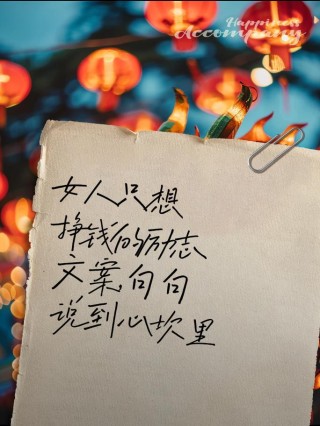 Happiness
Accompany
女人只想
挣钱的励志
文案,句句
说到心坎里